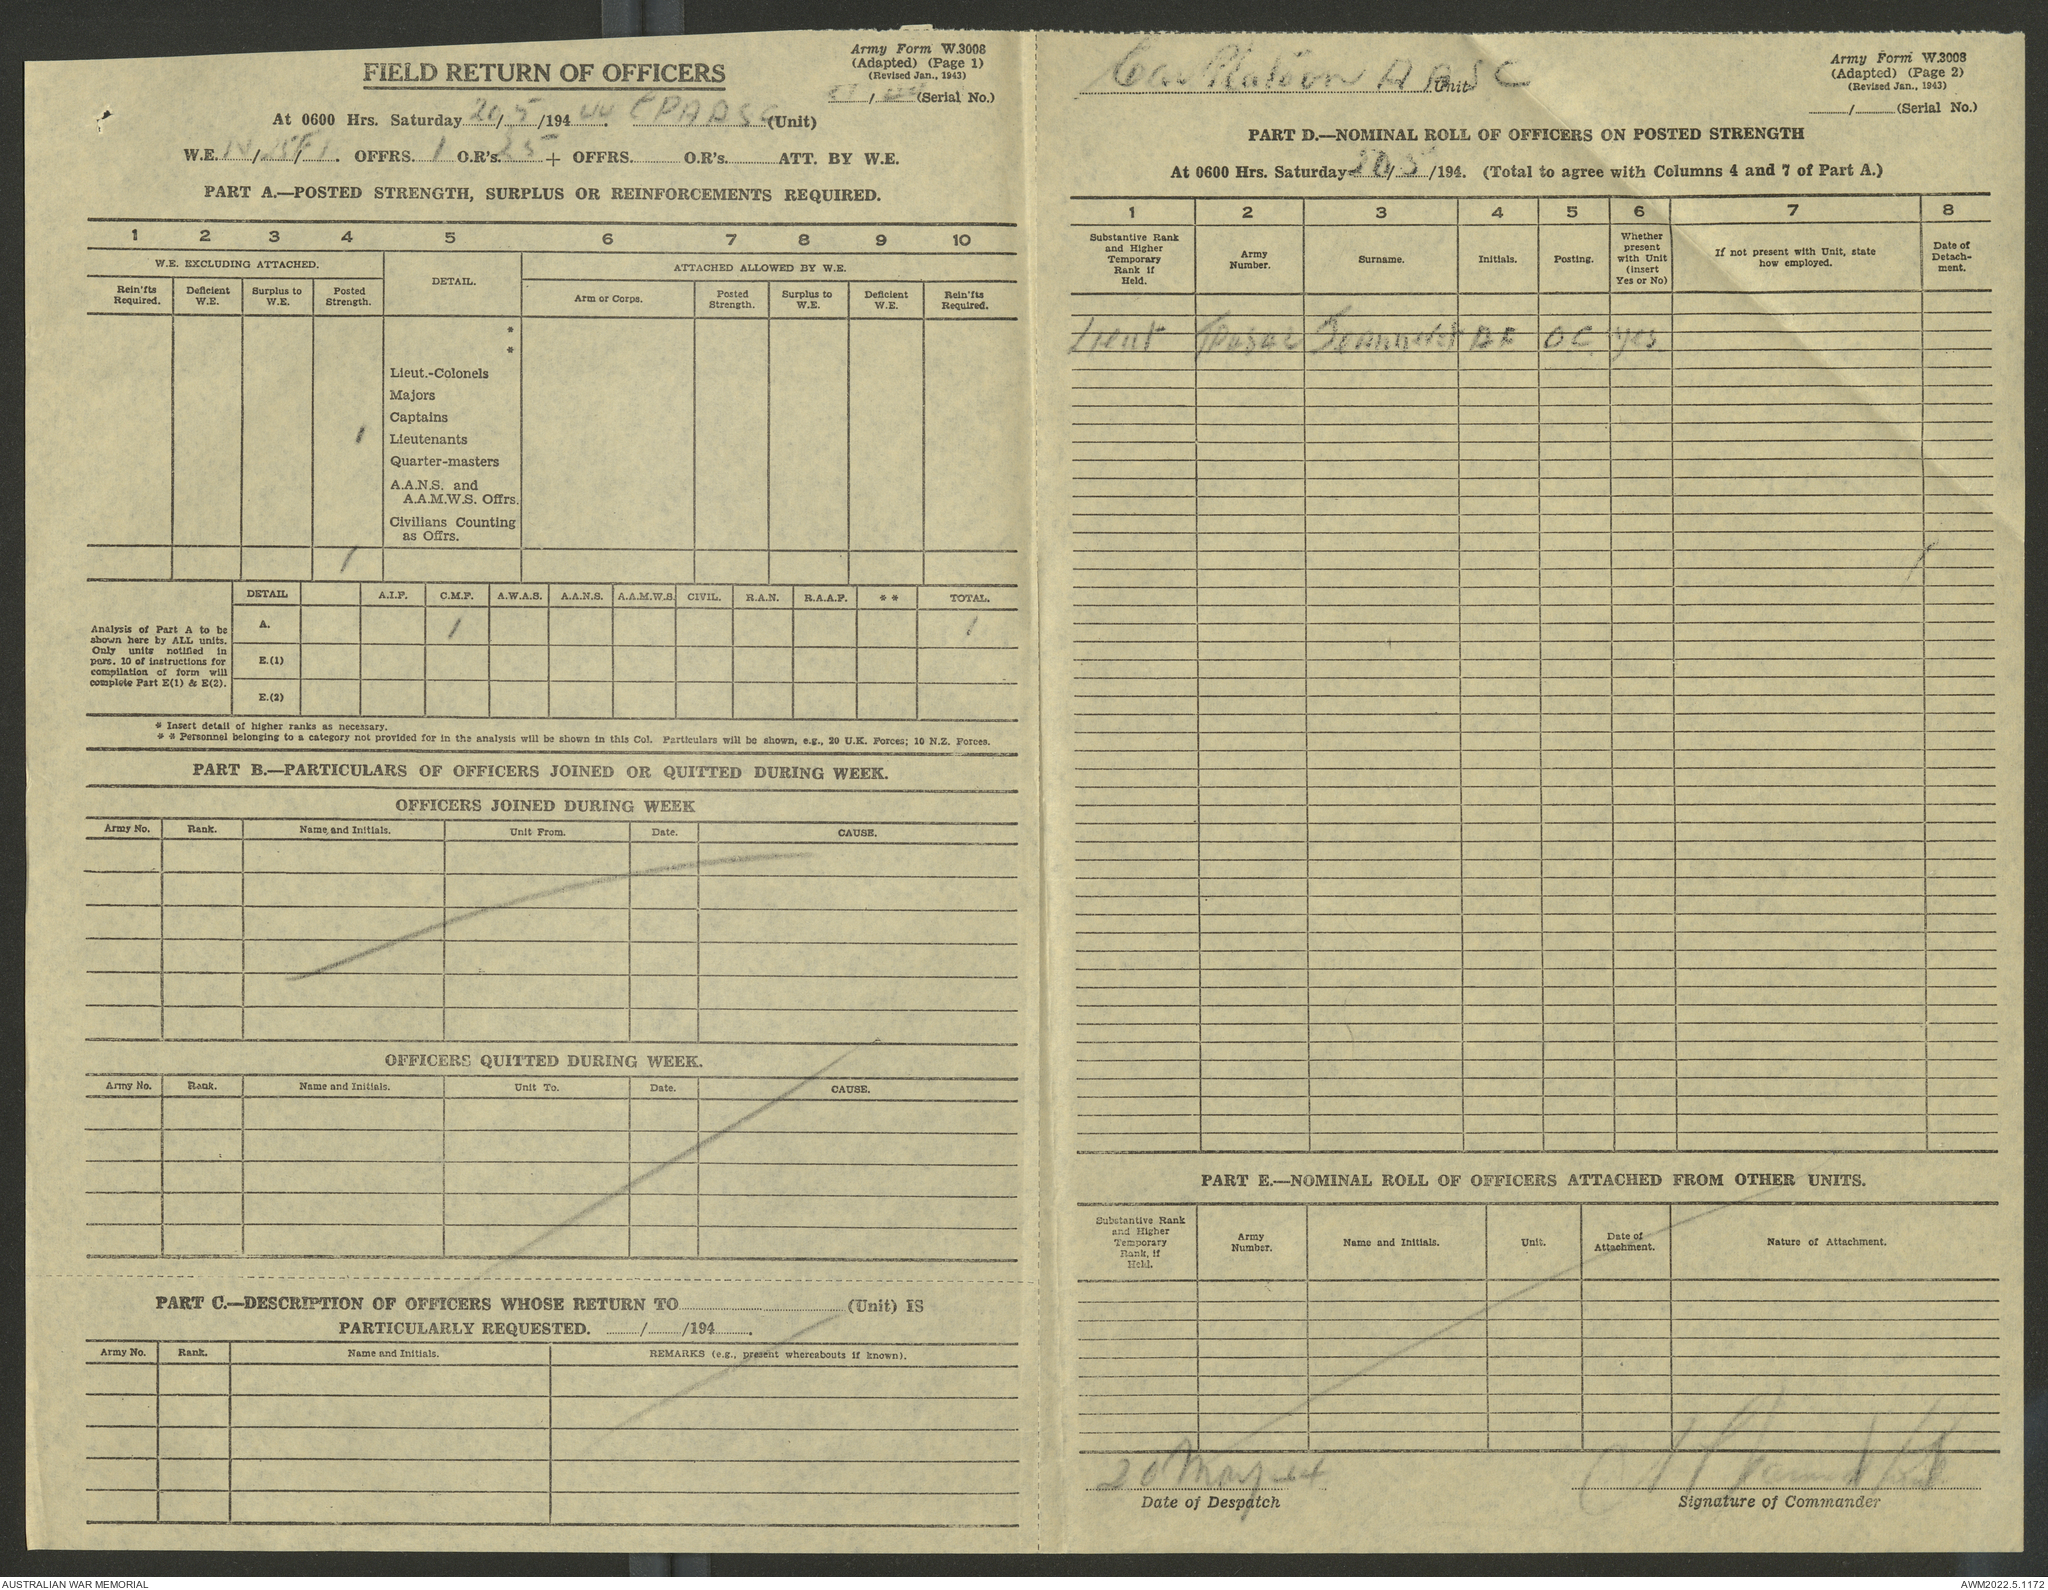 Army Form W.3008
(Adapted) (Page 1)
(Revised Jan., 1943)
FIELD RETURN OF OFFICERS
/ (Serial No.)
At 0600 Hrs. Saturday 20/5/1944. CPAASC (Unit)
W.E. / / . OFFRS. 1 O.R's. 25 + OFFRS. O.R's. ATT. BY W.E.
PART A.—POSTED STRENGTH, SURPLUS OR REINFORCEMENTS REQUIRED.
1 2 3 4 5 6 7 8 9 10
W.E. EXCLUDING ATTACHED. DETAIL. ATTACHED ALLOWED BY W.E.
Rein'fts Required. Deficient W.E. Surplus to W.E. Posted Strength. Arm or Corps. Posted Strength. Surplus to W.E. Deficient W.E. Rein'fts Required.
*
*
Lieut.-Colonels
Majors
Captains
1 Lieutenants
Quarter-masters
A.A.N.S. and
A.A.M.W.S. Offrs.
Civilians Counting
as Offrs.
1
DETAIL A.I.F. C.M.F. A.W.A.S. A.A.N.S. A.A.M.W.S. CIVIL. R.A.N. R.A.A.F. * * TOTAL.
Analysis of Part A to be
shown here by ALL units.
Only units notified in
para. 10 of instructions for
compilation of form will
complete Part E(1) & E(2).
A. 1 1
E.(1)
E.(2)
* Insert detail of higher ranks as necessary.
* * Personnel belonging to a category not provided for in the analysis will be shown in this Col. Particulars will be shown, e.g., 20 U.K. Forces; 10 N.Z. Forces.
PART B.—PARTICULARS OF OFFICERS JOINED OR QUITTED DURING WEEK.
OFFICERS JOINED DURING WEEK
Army No. Rank. Name and Initials. Unit From. Date. CAUSE.
OFFICERS QUITTED DURING WEEK.
Army No. Rank. Name and Initials. Unit To. Date. CAUSE.
PART C.—DESCRIPTION OF OFFICERS WHOSE RETURN TO (Unit) IS
PARTICULARLY REQUESTED. / /194 .
Army No. Rank. Name and Initials. REMARKS (e.g., present whereabouts if known).
Army Form W.3008
(Adapted) (Page 2)
(Revised Jan., 1943)
Car Platoon AASC Unit
/ (Serial No.)
PART D.—NOMINAL ROLL OF OFFICERS ON POSTED STRENGTH
At 0600 Hrs. Saturday 20/5/194. (Total to agree with Columns 4 and 7 of Part A.)
1 2 3 4 5 6 7 8
Substantive Rank and Higher Temporary Rank if Held. Army Number. Surname. Initials. Posting. Whether present with Unit (insert Yes or No) If not present with Unit, state how employed. Date of Detachment.
Lieut OC yes
1
PART E.—NOMINAL ROLL OF OFFICERS ATTACHED FROM OTHER UNITS.
Substantive Rank and Higher Temporary Rank, if Held. Army Number. Name and Initials. Unit. Date of Attachment. Nature of Attachment.
20 May 44
Date of Despatch Signature of Commander
AUSTRALIAN WAR MEMORIAL AWM2022.5.1172